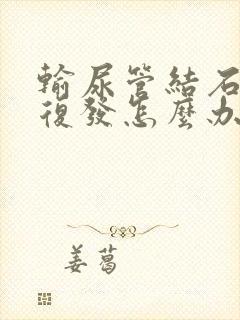 輸尿管結石
復發怎麼办
姜葛